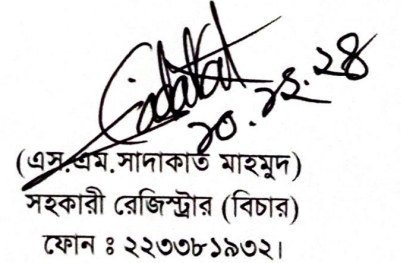 ১০.১২.২৪
(এস.এম.সাদাকাত মাহমুদ)
সহকারী রেজিস্ট্রার (বিচার)
ফোন ঃ ২২৩৩৮১৯৩২।